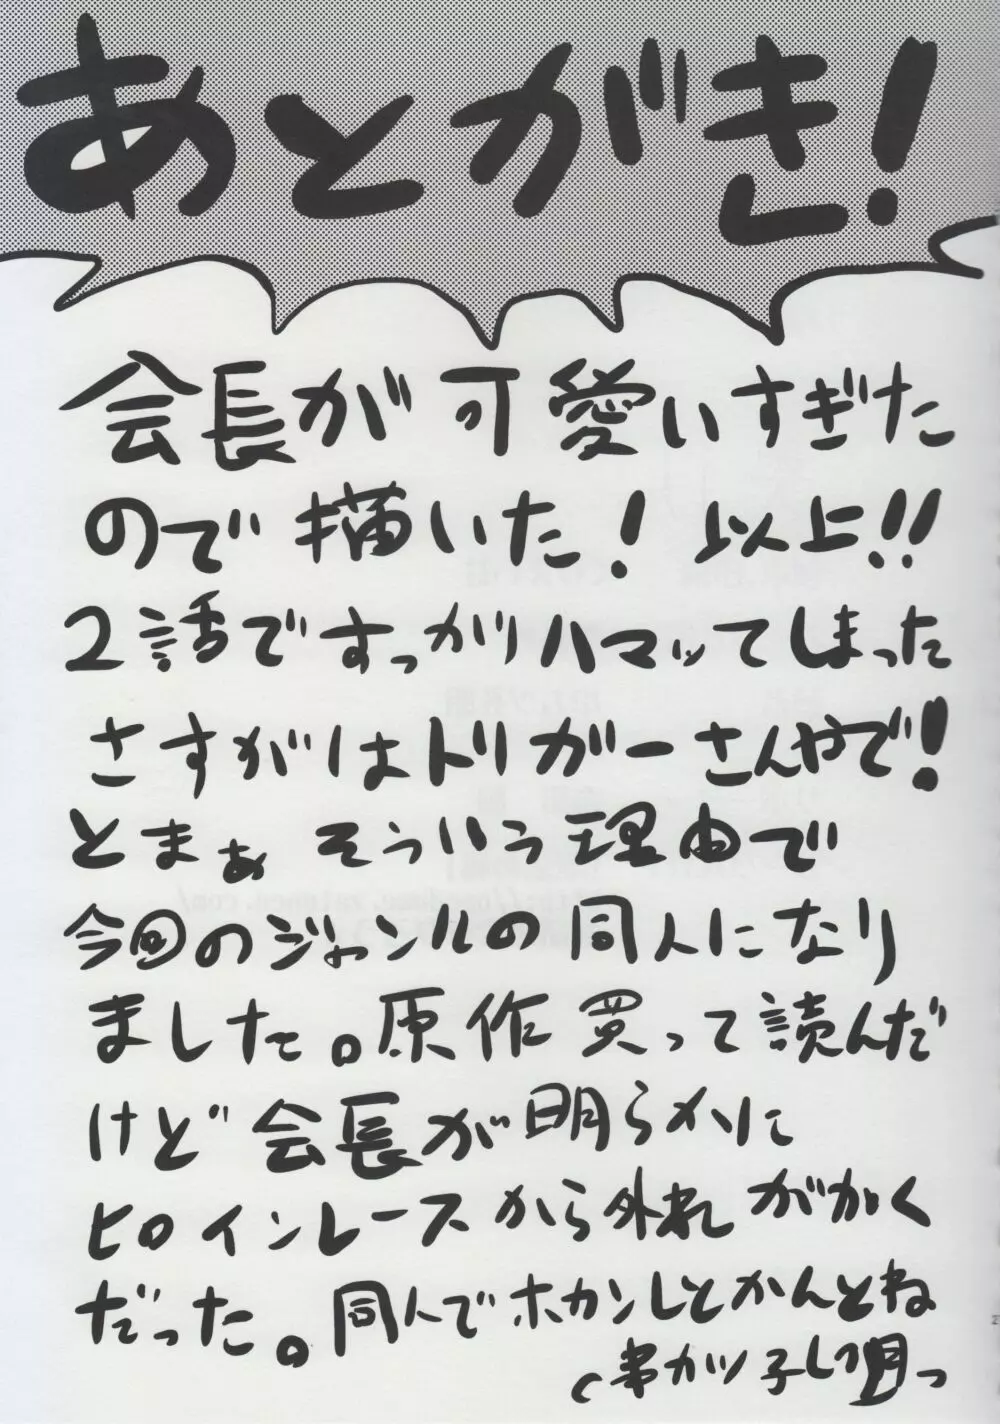 あとがき!
会長が可愛いすぎた
ので描いた! 以上!!
2話ですっかりハマッてしまった
さすがはトリガーさんやで!
とまぁ そういう理由で
今回のジャンルの同人になり
ました。原作買って読んだ
けど会長が明らかに
ヒロインレースから外れががく
だった。同人でホカンしとかんとね
串カツ子しつ